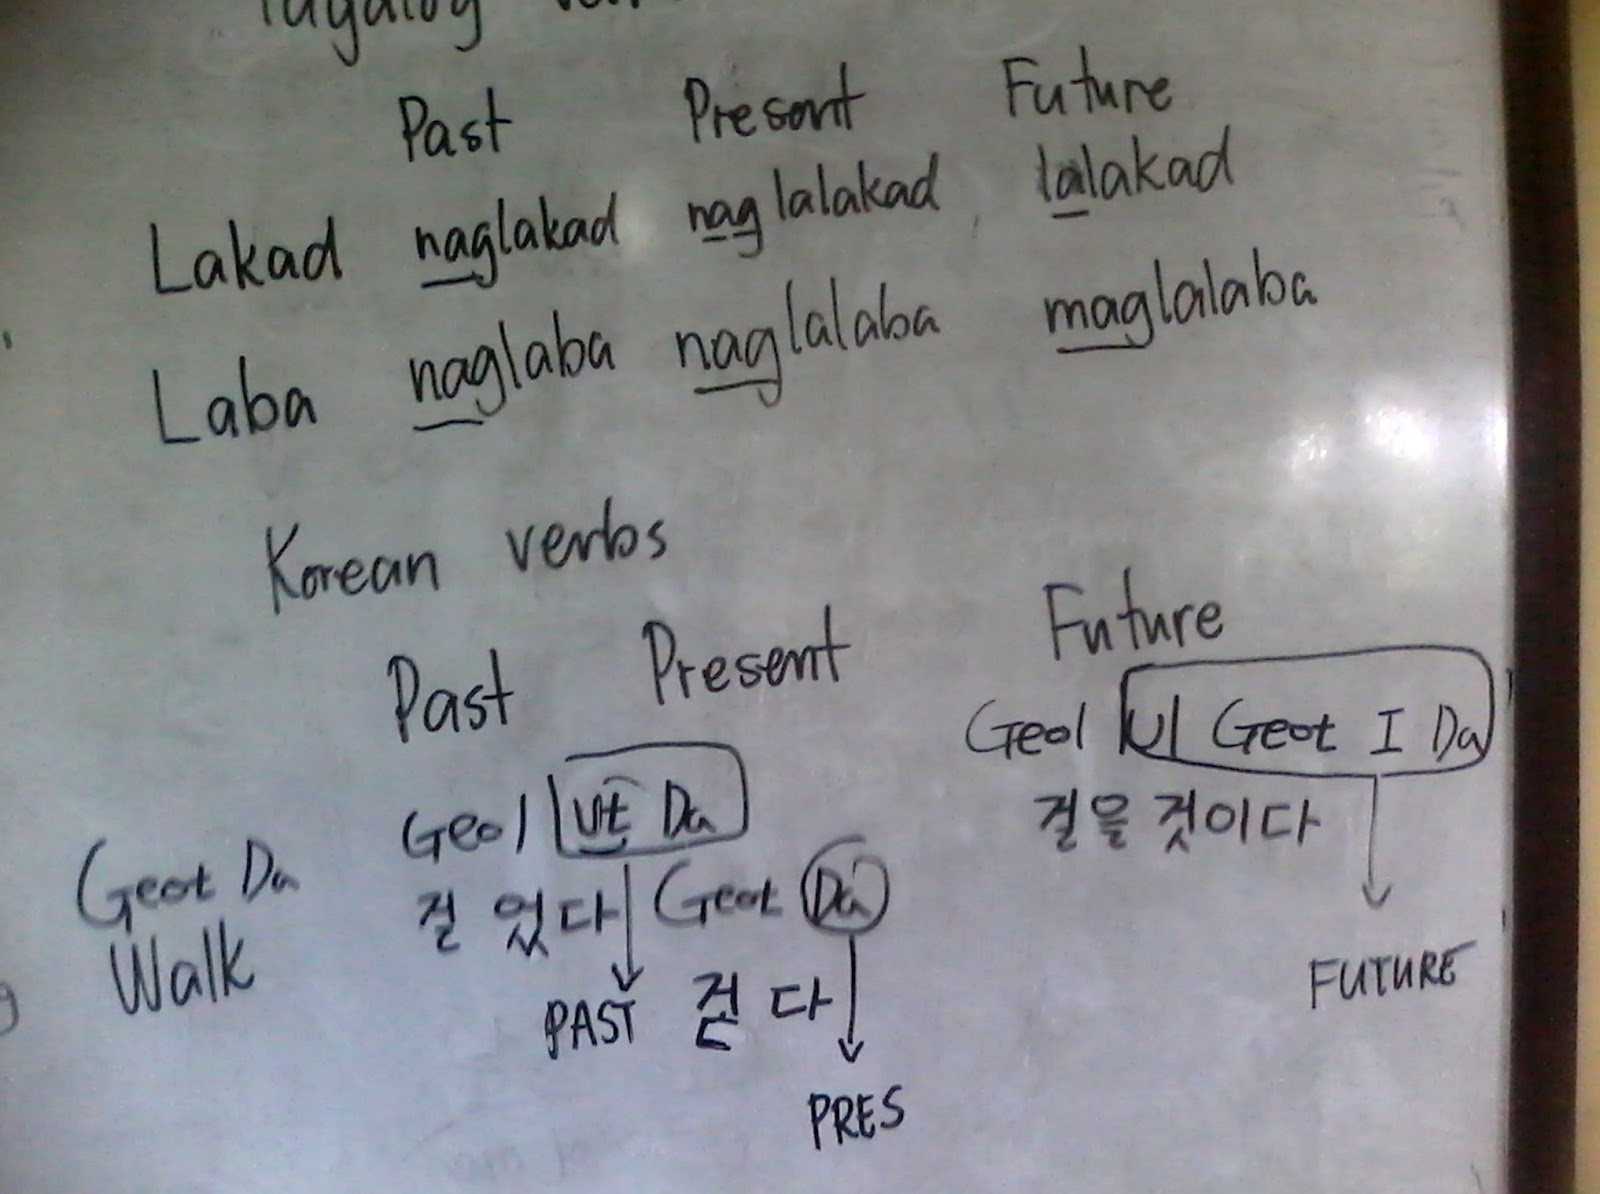 Tagalog
Past Present Future
Lakad naglakad naglalakad lalakad
Laba naglaba naglalaba maglalaba
Korean verbs
Past Present Future
Geol Ut Da Geol Ul Geot I Da
걸을것이다
Geot Da 걸 었다 Geot Da
Walk
PAST 걷 다 FUTURE
PRES